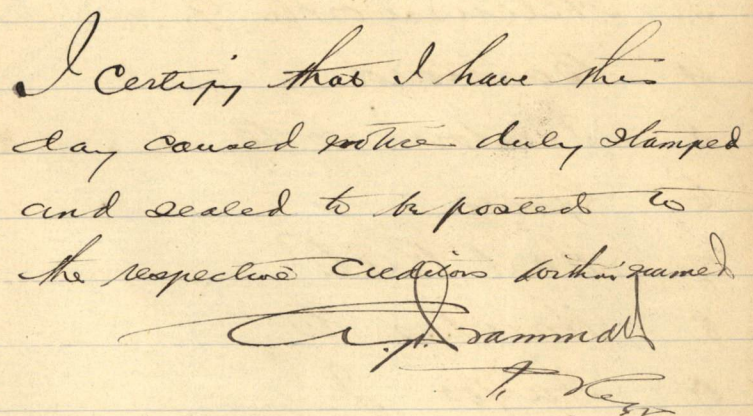 I certify that I have this
day caused notice duly stamped
and sealed to be posted to
the respective creditors within named